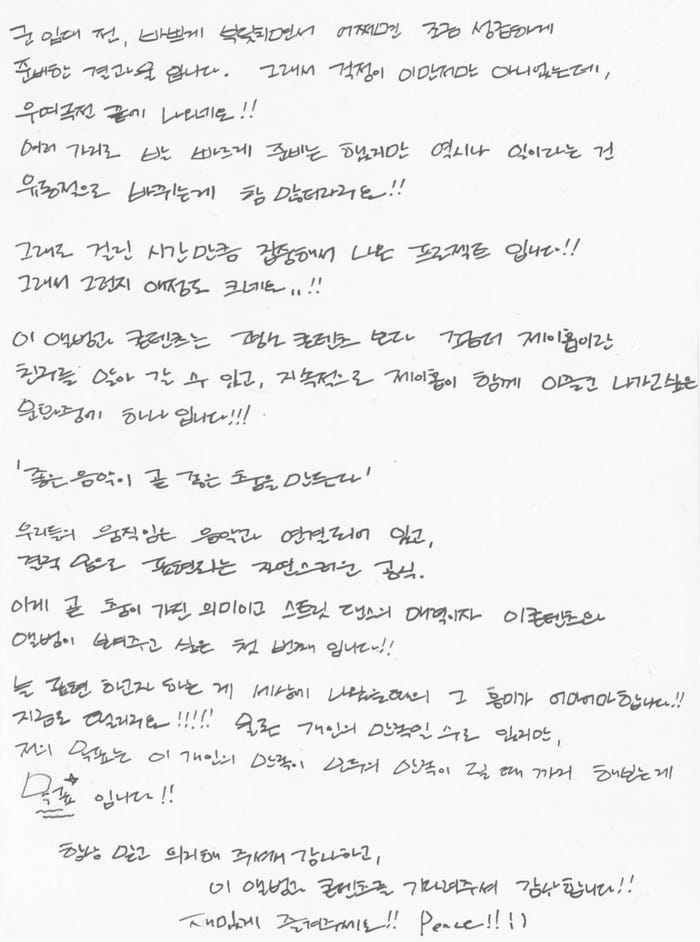 군 입대 전, 바쁘게 북닥되면서 어쩌면 조금 성급하게
준비한 결과물 입니다. 그래서 걱정이 이만저만 아니었는데,
우여곡전 끝에 나오네요!!
여러 가지로 발 빠르게 준비는 했지만 역시나 일이라는 건
유동적으로 바뀌는게 참 많더라구요!!
그래도 걸린 시간만큼 집중해서 나온 프로젝트 입니다!!
그래서 그런지 애정도 크네요..!!
이 앨범과 콘텐츠는 평소 콘텐츠 보다 좀 더 제이홉이란
친구를 알아 갈 수 있고, 지속적으로 제이홉이 함께 이끌고 나가고 싶은
문화중에 하나 입니다!!!
'좋은 음악이 곧 좋은 춤을 만든다'
우리들의 움직임은 음악과 연결되어 있고,
결국 몸으로 표현하는 자연스러운 공식.
이게 곧 춤이 가진 의미이고 스트릿 댄스의 매력이자 이 콘텐츠와
앨범이 보여주고 싶은 첫 번째 입니다!!
늘 표현 하고자 하는 게 세상에 나왔을때의 그 흥미가 어마어마합니다!!
지금도 떨리구요!!!!! 물론 개인의 만족일 수도 있지만,
저의 목표는 이 개인의 만족이 모두의 만족이 될 때 까지 해보는게
목표 입니다!!
항상 믿고 의지해 주셔서 감사하고,
이 앨범과 콘텐츠를 기다려주셔 감사합니다!!
재밌게 즐겨주세요!! Peace!! :)